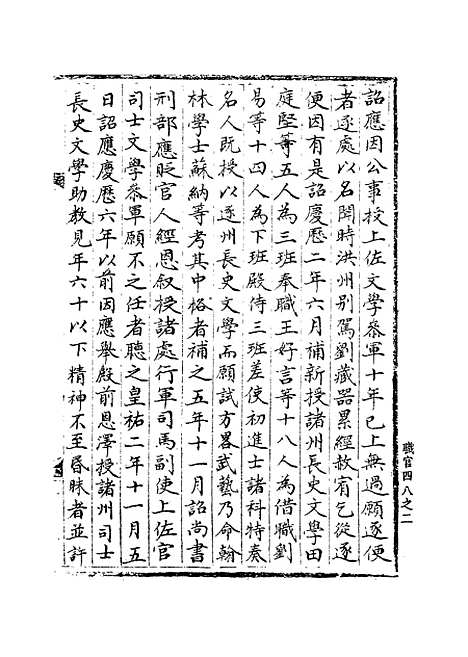 詔應因公事授上佐文學參軍十年已上無過願逐便
者逐處以名聞時洪州別駕劉藏器累經赦宥乞從逐
便因有是詔慶曆二年六月補新授諸州長史文學田
庭堅等五人為三班奉職王好言等十八人為借職劉
易等十四人為下班殿侍三班差使初進士諸科特奏
名人既授以逐州長史文學而願試方畧武藝乃命翰
林學士蘇紳等考其中格者補之五年十一月詔尚書
刑部應貶官人經恩叙授諸處行軍司馬副使上佐官
司士文學參軍願不之任者聽之皇祐二年十一月五
日詔應慶曆六年以前因應舉殿前恩澤授諸州司士
長史文學助教見年六十以下精神不至昏昧者並許
職官四八之二